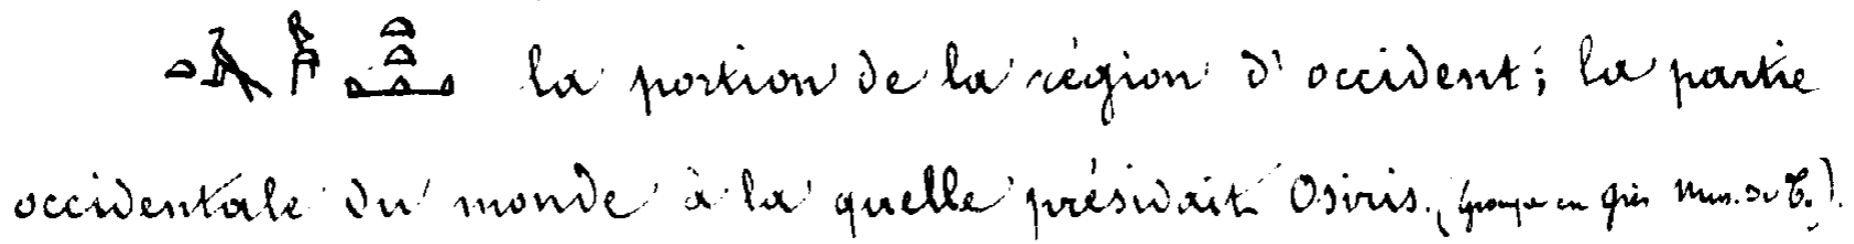 la portion de la région d'occident; la partie
occidentale du monde à la quelle présidait Osiris. (Groupe en grès Mus. de T.).